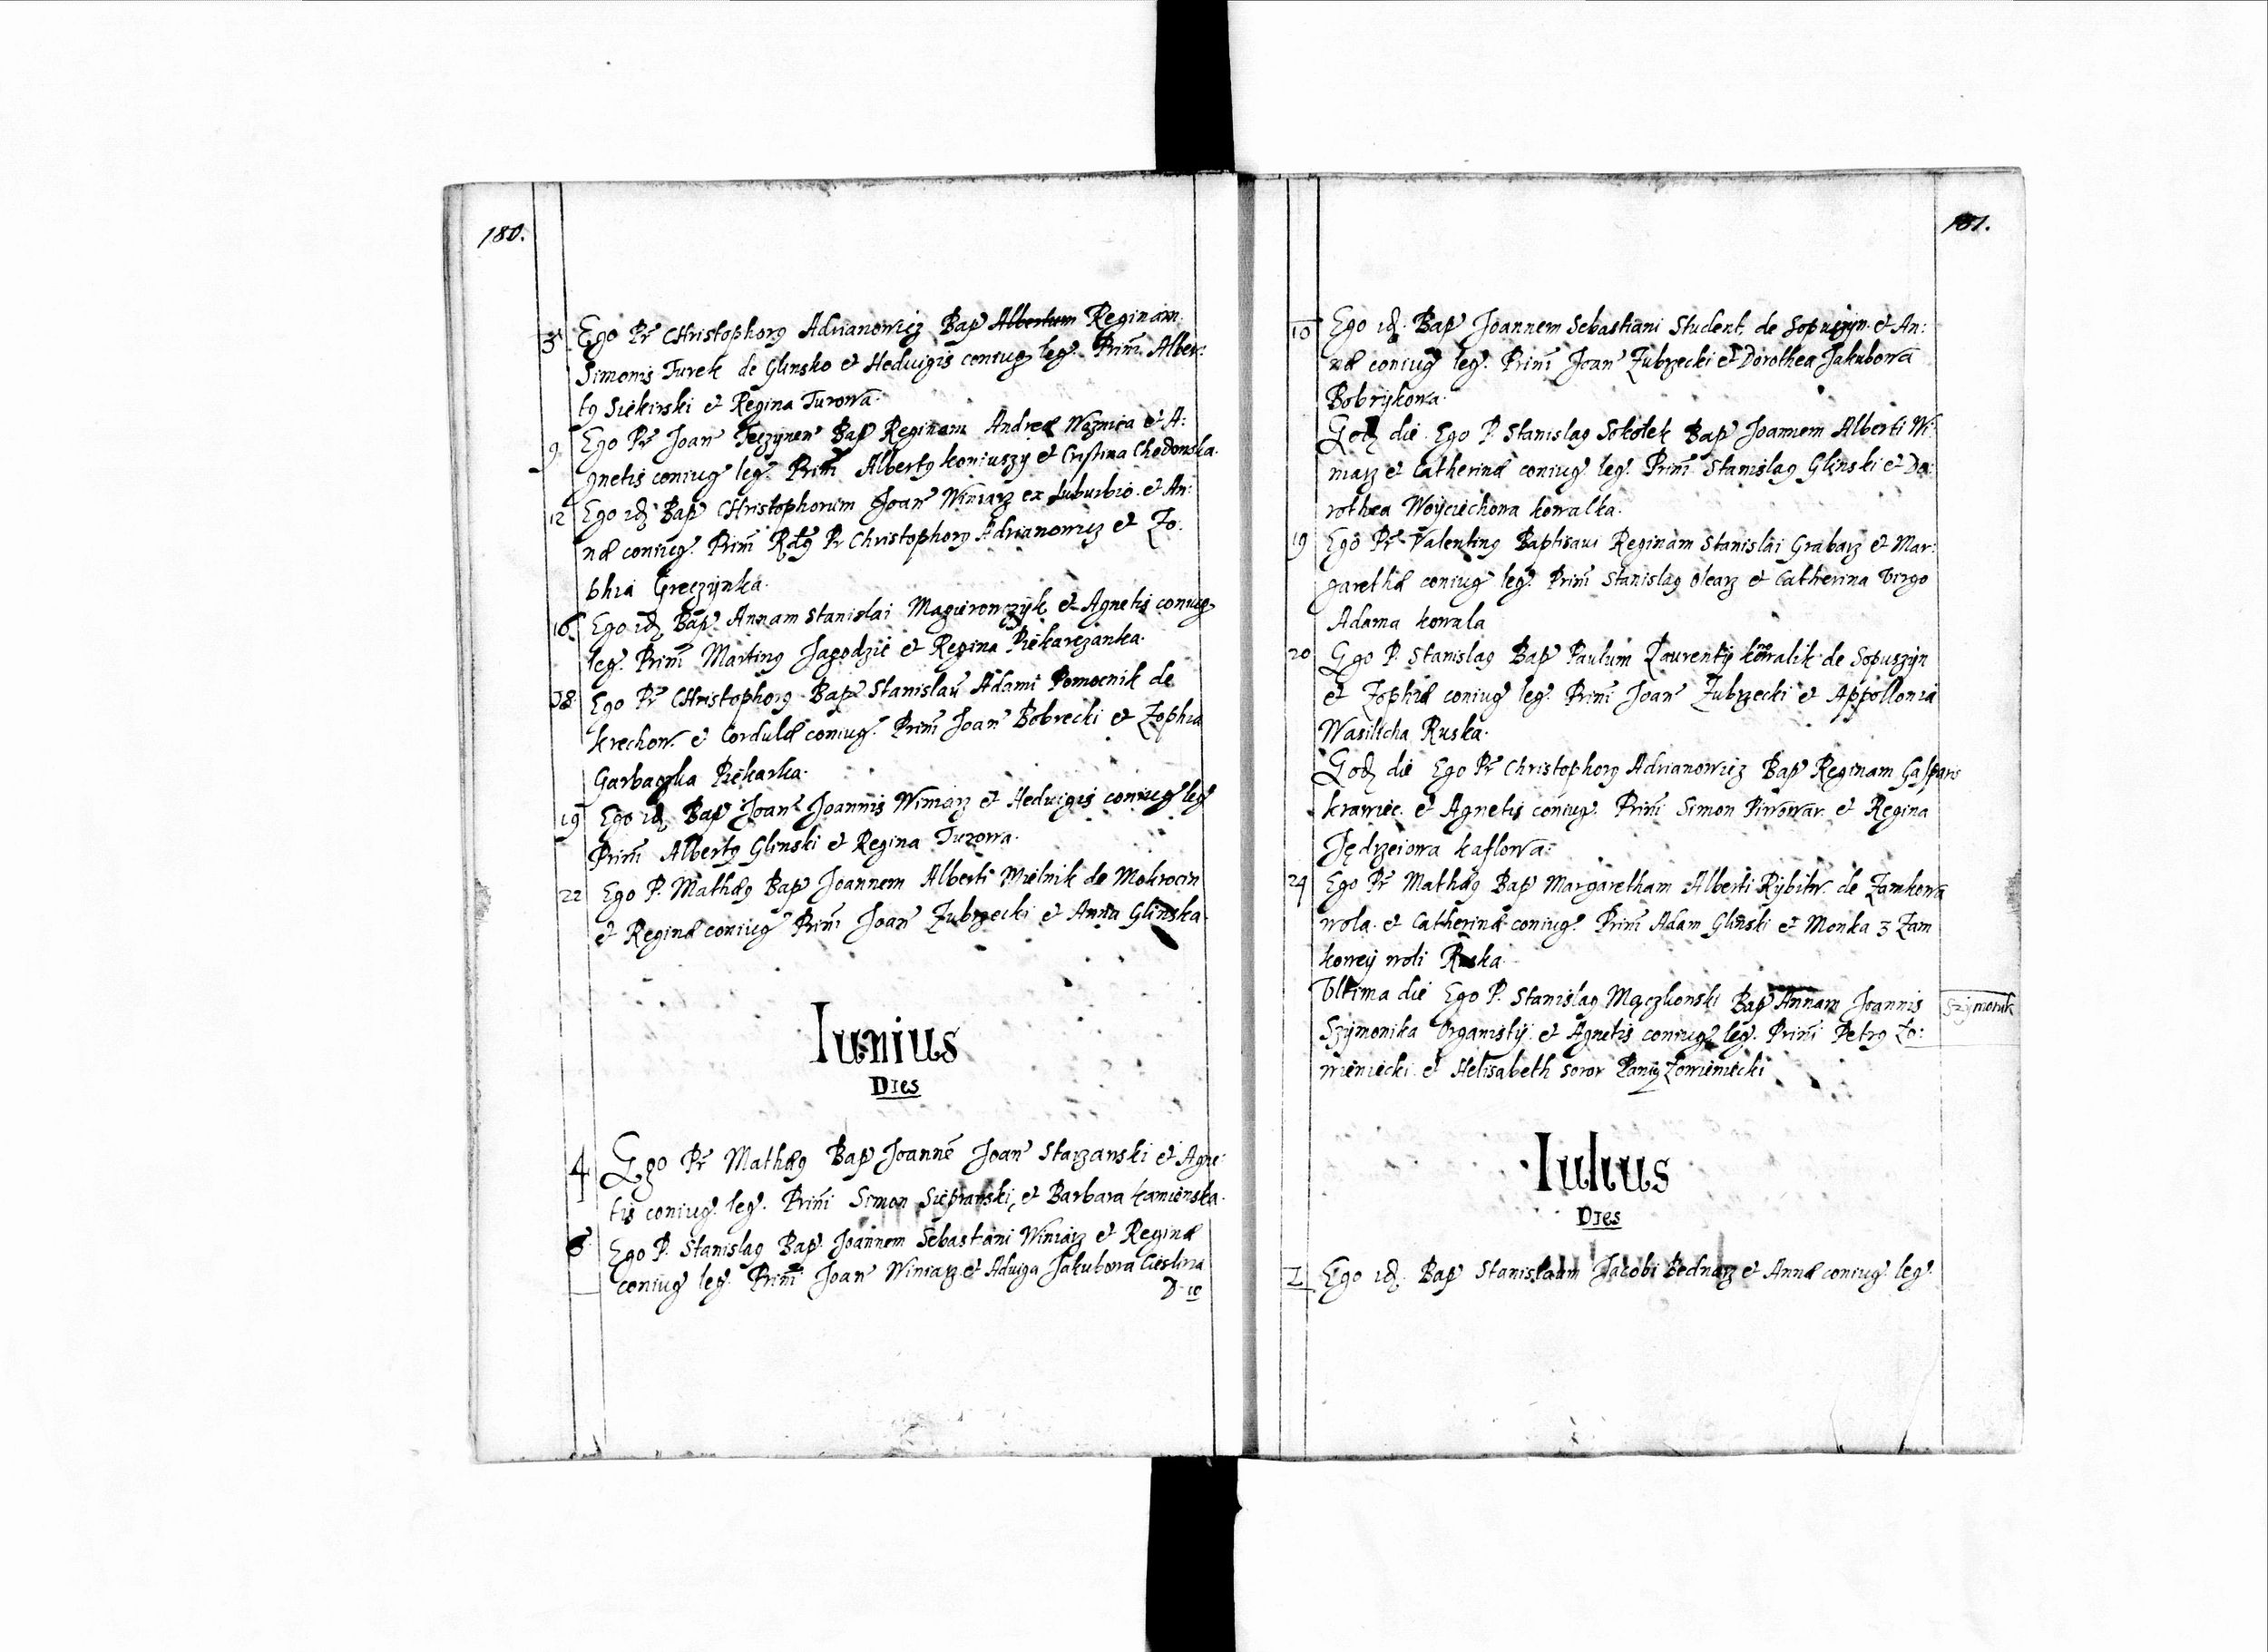 180.
3 Ego Pr Christophorꝯ Adrianowicz Bap Albertum Reginam
Simonis Turek de Glinsko et Hedvigis coniug leg. Prim Alber:
tꝯ Siekirski et Regina Turowa.
9 Ego Pr Joan Teczynen Bap Reginam Andreæ Woznica et A:
gnetis coniug leg. Prim Albertꝯ koniuszy et Cristina Chodowska.
12 Ego id Bap Christophorum Joan Winiarz ex suburbio et An:
næ coniug. Prim Rdꝯ Pr Christophorꝯ Adrianowicz et Zo:
phia Greczynka.
16 Ego id Bap Annam Stanislai Magierowczyk et Agnetis coniug
leg. Prim Martinꝯ Jagodzic et Regina Piekarczanka.
18 Ego Pr Christophorꝯ Bap Stanislau Adami Pomocnik de
krechow. et Cordulæ coniug. Prim Joan Bobrecki et Zophia
Garbaczka Piekarka.
19 Ego id Bap Joan Joannis Winiarz et Hedvigis coniug leg
Prim Albertꝯ Glinski et Regina Turowa.
22 Ego P. Mathæꝯ Bap Joannem Alberti Mielnik de Mokrocin
et Reginæ coniug Prim Joan Zubrzecki et Anna Glinska.
Iunius
Dies
4 Ego Pr Mathæꝯ Bap Joanne Joan Starzanski et Agne:
tis coniug. leg. Prim Simon Siepranski et Barbara kamienska.
6 Ego P. Stanislaꝯ Bap Joannem Sebastiani Winiarz et Reginæ
coniug leg. Prim Joan Winiarz et Adviga Jakubowa Cieslina
D. 10
181.
10 Ego id. Bap Joannem Sebastiani Student. de Sopuszyn. et An:
næ coniug leg. Prim Joan Zubrzecki et Dorothea Jakubowa
Bobrykowa.
Eod die Ego P. Stanislaꝯ Sokolek Bap Joannem Alberti Wi:
niarz et Catherinæ coniug. leg. Prim Stanislaꝯ Glinski et Do:
rothea Woyciechowa kowalka.
19 Ego Pr Valentinꝯ Baptisavi Reginam Stanislai Grabarz et Mar:
garethæ coniug leg. Prim Stanislaꝯ olearz et Catherina Virgo
Adama kowala
20 Ego P. Stanislaꝯ Bap Paulum Laurentÿ kowalik de Sopuszyn
et Zophiæ coniug leg. Prim Joan Zubrzecki et Appollonia
Wasilicha Ruska.
Eod die Ego Pr Christophorꝯ Adrianowicz Bap Reginam Gasparis
krawiec. et Agnetis coniug. Prim Simon Piwowar. et Regina
Jędrzeiowa kaflowa.
24 Ego Pr Mathæꝯ Bap Margaretham Alberti Rybitw. de Zamkowa
wola. et Catherinæ coniug. Prim Adam Glinski et Monka z Zam
kowey woli Ruska.
Ultima die Ego P. Stanislaꝯ Mączkonski Bap Annam Joannis
Szymonika Organistÿ. et Agnetis coniug. leg. Prim Petrꝯ Zo:
wieniecki. et Helisabeth soror Zowieniecki
Szymonik
Iulius
Dies
I Ego id. Bap Stanislaum Jacobi Bednarz et Annæ coniug. leg.